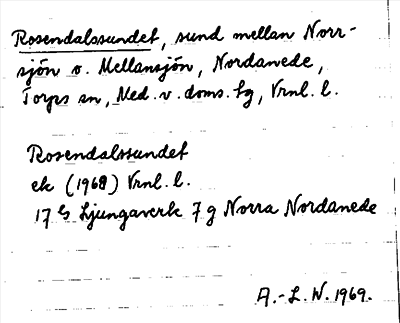 Rosendalssundet, sund mellan Norr-
sjön o. Mellansjön, Nordanede,
Torps sn, Med. v. doms. tg, Vrnl. l.
Rosendalssundet
ek (1968) Vrnl. l.
17 G Ljungaverk 7 g Norra Nordanede
A.-L. W. 1969.